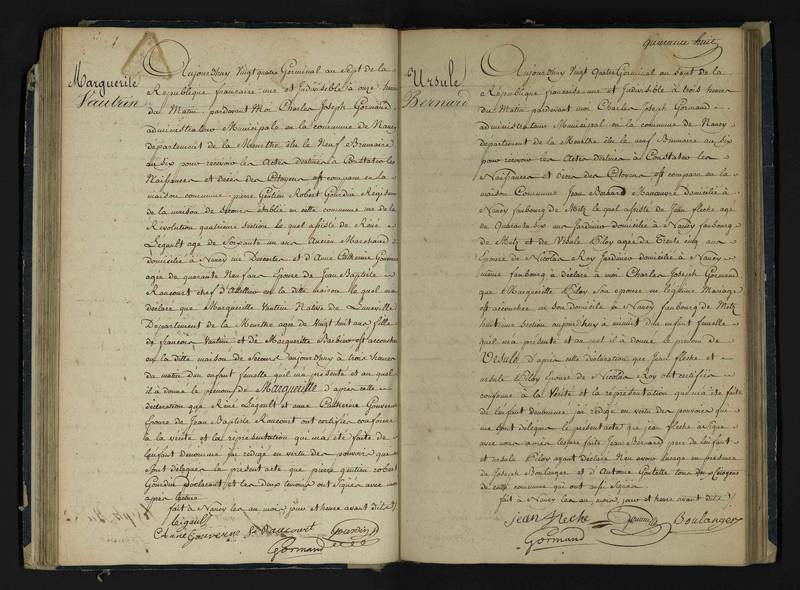 Marguerite
Vautrin
Aujourd'huy Vingt quatre Germinal an Sept de la
République française une et Indivisible à onze heures
du Matin pardevant Moi Charles Joseph Gormand
administrateur Municipale en la commune de Nancy
Département de la Meurthe élu le Neuf Brumaire
an Six pour recevoir les Actes destinés à Constater les
Naissances et décès des Citoyens est comparu en la
maison commune pierre Gentien Robert Gourdin Régisseur
de la maison de Secours établie en cette commune rue de la
Révolution quatrieme Section le quel assisté de René
Légault agé de Soixante un ans Ancien Marchand
domicilié à Nancy et d'Anne Catherine Gouverne
agée de quarante Neuf ans Epouse de Jean Baptiste
Raucourt chef d'Attellier en la ditte maison le quel m'a
déclaré que Marguerite Vautrin Native de Luneville
Département de la Meurthe agée de Vingt huit ans fille
de francois Vautrin et de Marguerite Barbeux est accouchée
en la ditte maison de Secours aujourd'huy à trois heures
du matin d'un Enfant femelle qu'il m'a présenté et au quel
il a donné le prénom de Marguerite d'après cette
déclaration que René Légault et anne Catherine Gouverne
Epouse de Jean Baptiste Raucourt ont certifiée conforme
à la verité et la représentation qui m'a été faite de
L'enfant denommé j'ai rédigé en vertu des pouvoirs qui me
Sont délégués le présent acte que pierre gentien robert
Gourdin Déclarant et les deux temoins ont Signés avec moi
après lecture
fait à Nancy les an, mois, jour et heure avant dits
Légault
C Anne Gouverne Fe Raucourt Gourdin
Gormand
quarante huit
Ursule
Bernard
Aujourd'huy Vingt Quatre Germinal an Sept de la
République francaise une et Indivisible à trois heures
du Matin pardevant moi Charles Joseph Gormand
administrateur Municipal en la commune de Nancy
departement de la Meurthe élu le neuf Brumaire an Six
pour recevoir les Actes destinés à Constater les
Naissances et décès des Citoyens est comparu en la
maison Commune Jean Bernard Manoeuvre domicilié à
Nancy faubourg de Metz le quel assisté de Jean fleche agé
de Quarante Six ans Jardinier domicilié à Nancy faubourg
de Metz et de Ursule Piloy agée de Trente cinq ans
Epouse de Nicolas Roy Jardinier domicilié à Nancy
même faubourg à déclaré à moi Charles Joseph Gormand
que Marguerite Piloy Son épouse en légitime Mariage
est accouchée en son domicile à Nancy faubourg de Metz
huitieme Section aujourd'huy à minuit d'un enfant femelle
qu'il m'a présenté et au quel il à donné le prénom de
Ursule d'après cette déclaration que Jean fleche et
ursule Piloy Epouse de Nicolas Roy ont certifiée
conforme à la Verité et la représentation qui m'a été faite
de l'enfant denommé j'ai rédigé en vertu des pouvoirs qui
me sont délégués le présent acte que Jean fleche a Signé
avec moi après lecture faite Jean Bernard pere de l'enfant
et ursule Piloy ayant déclaré N'en avoir l'usage en présence
de Joseph Boulanger et d'Antoine tous deux Citoyens
de cette commune qui ont Signés
fait à Nancy les an, mois, jour et heure avant dits
jean fleche Boulanger
Gormand